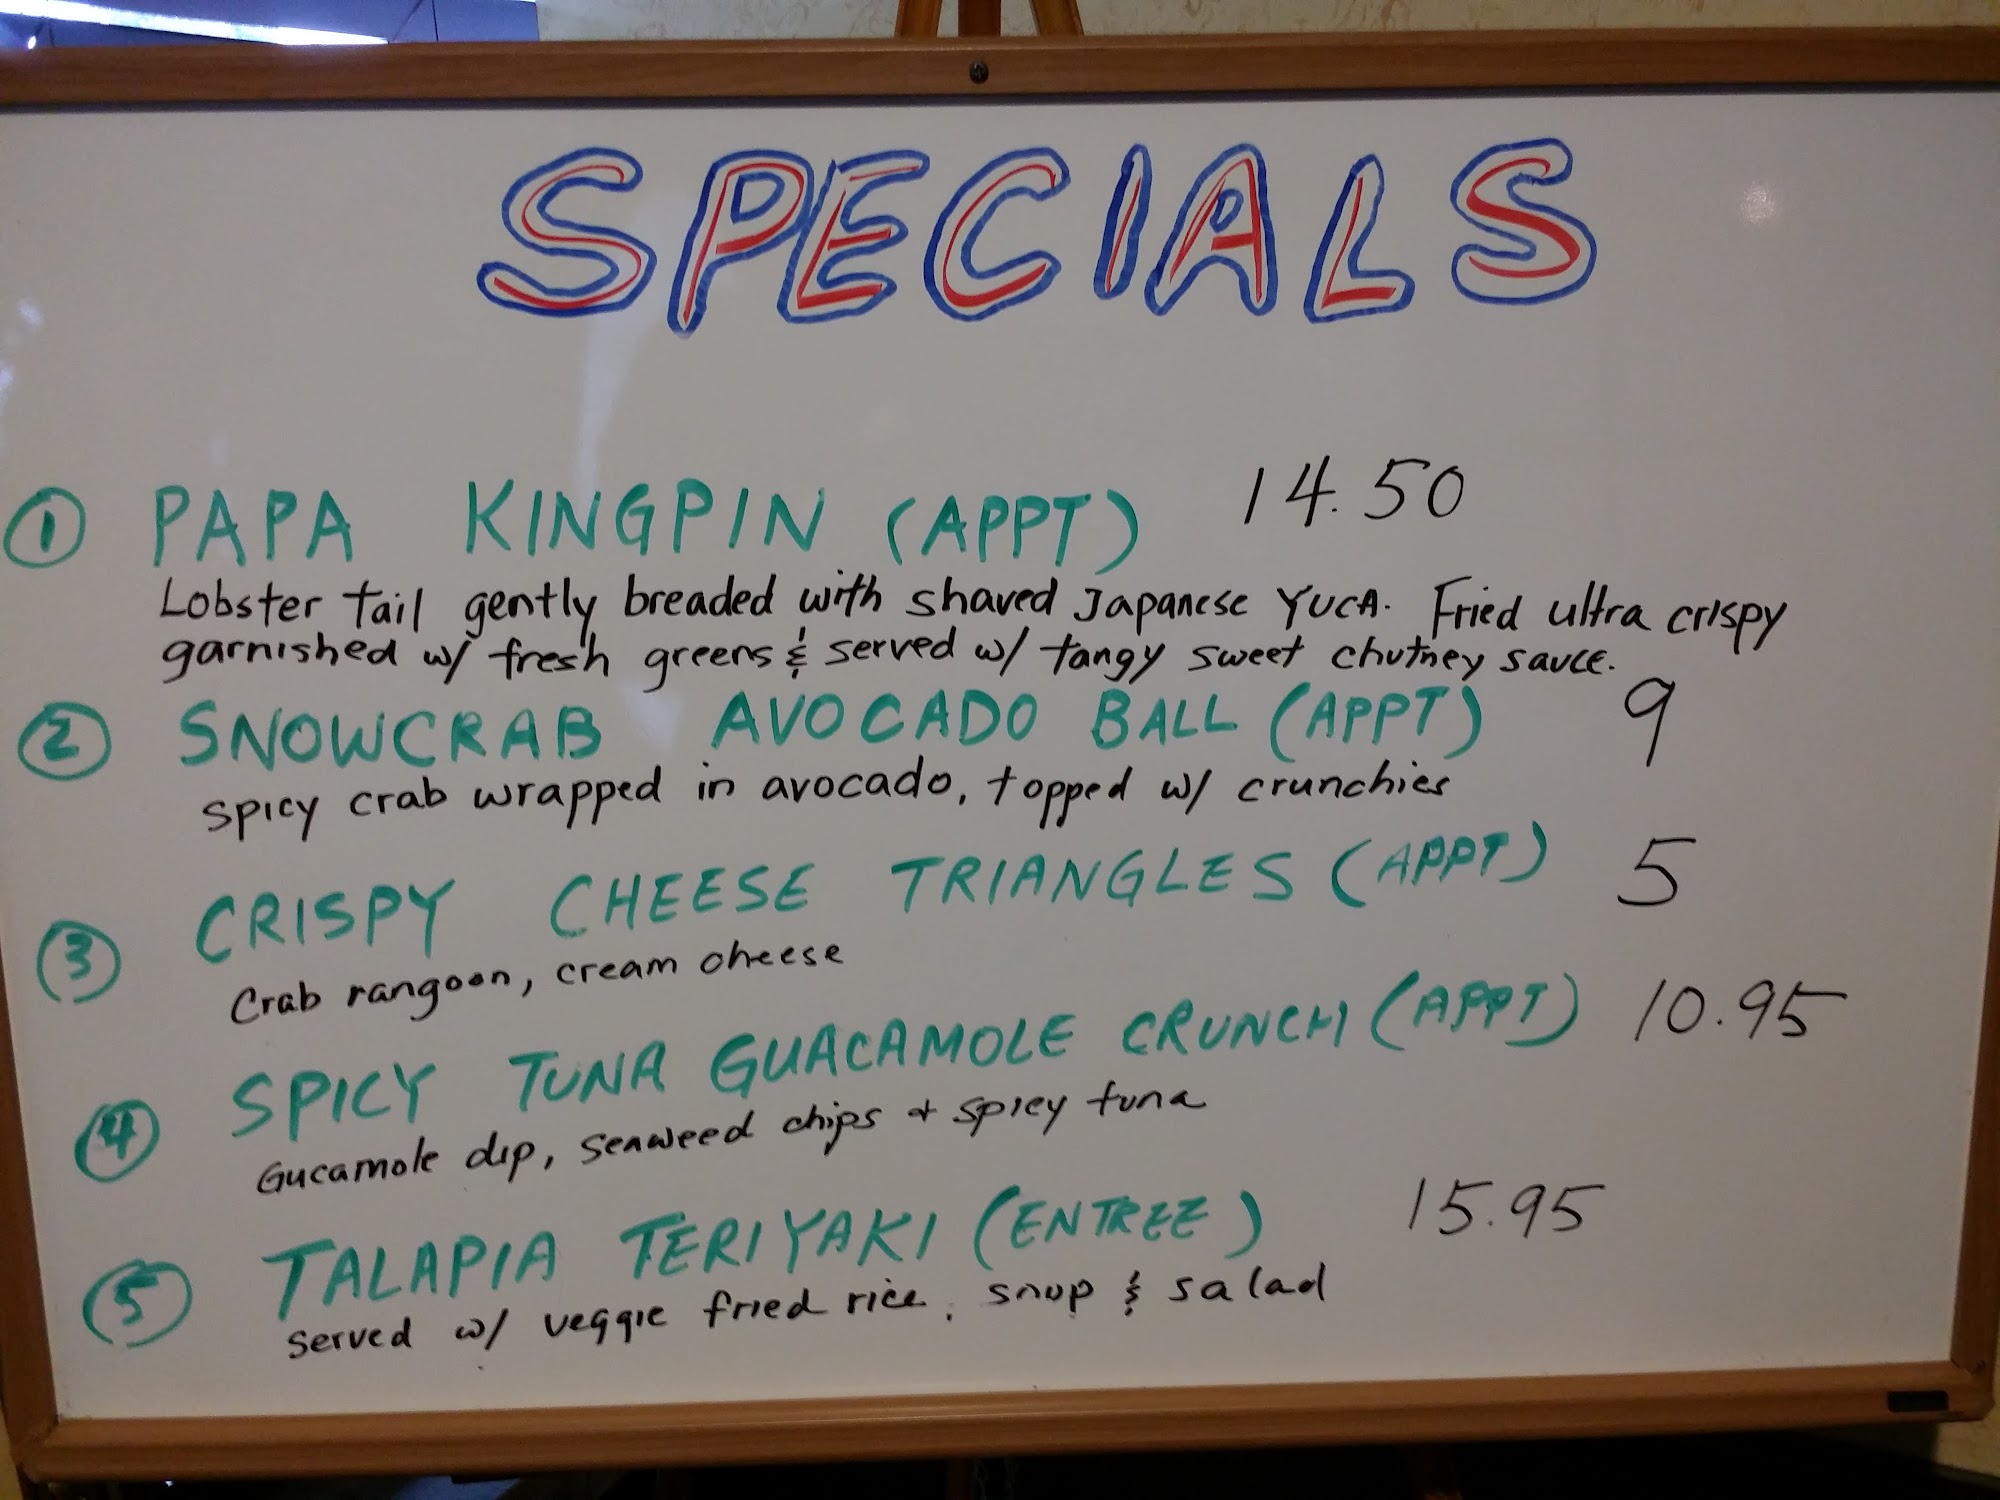 SPECIALS
① PAPA KINGPIN (APPT) 14.50
Lobster tail gently breaded with shaved Japanese YUCA. Fried ultra crispy
garnished w/ fresh greens & served w/ tangy sweet chutney sauce.
② SNOWCRAB AVOCADO BALL (APPT) 9
spicy crab wrapped in avocado, topped w/ crunchies
③ CRISPY CHEESE TRIANGLES (APPT) 5
Crab rangoon, cream cheese
④ SPICY TUNA GUACAMOLE CRUNCH (APPT) 10.95
Gucamole dip, seaweed chips + spicy tuna
⑤ TALAPIA TERIYAKI (ENTREE) 15.95
served w/ veggie fried rice, soup & salad